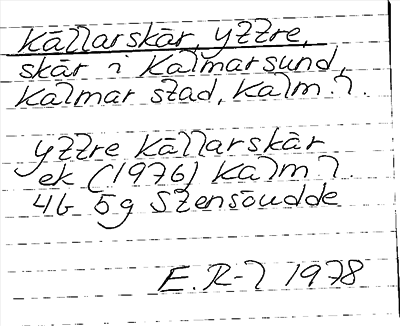 Källarskär, yttre,
skär i Kalmarsund,
Kalmar stad, Kalm. l.
yttre Källarskär
ek (1976) Kalm l.
4G 5g Stensöudde
E. R-l 1978